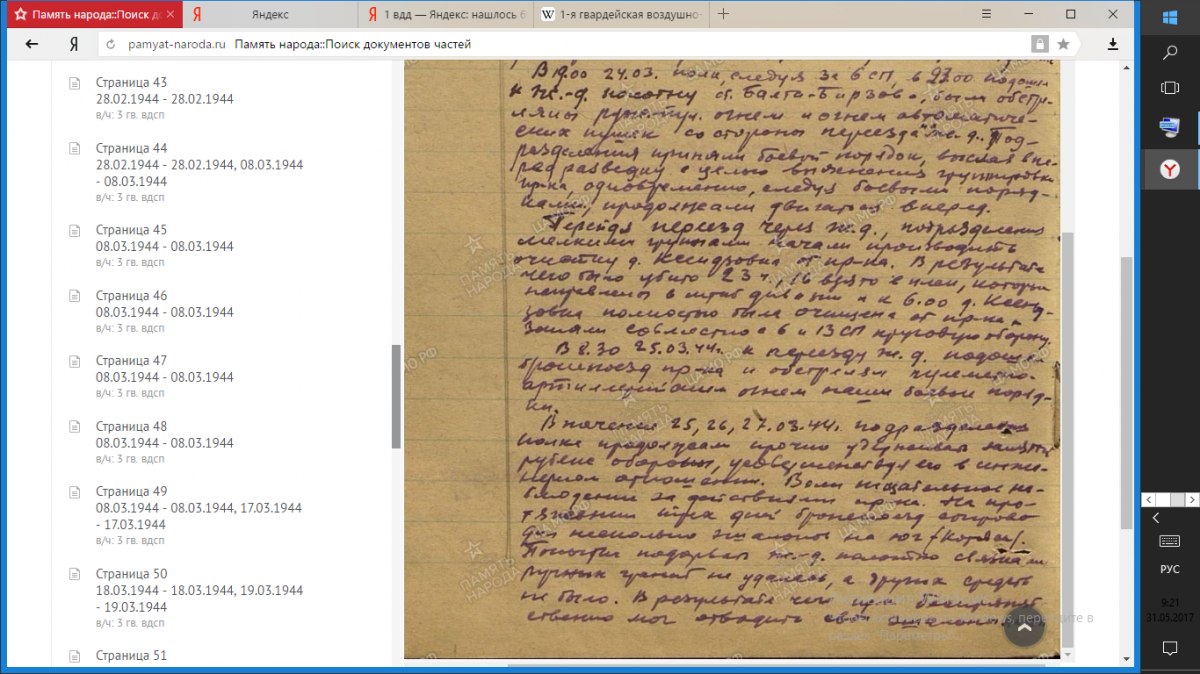 Память народа::Поиск до
Яндекс
1 вдд — Яндекс: нашлось 6
1-я гвардейская воздушно-
pamyat-naroda.ru Память народа::Поиск документов частей
Страница 43
28.02.1944 - 28.02.1944
в/ч: 3 гв. вдсп
Страница 44
28.02.1944 - 28.02.1944, 08.03.1944
- 08.03.1944
в/ч: 3 гв. вдсп
Страница 45
08.03.1944 - 08.03.1944
в/ч: 3 гв. вдсп
Страница 46
08.03.1944 - 08.03.1944
в/ч: 3 гв. вдсп
Страница 47
08.03.1944 - 08.03.1944
в/ч: 3 гв. вдсп
Страница 48
08.03.1944 - 08.03.1944
в/ч: 3 гв. вдсп
Страница 49
08.03.1944 - 08.03.1944, 17.03.1944
- 17.03.1944
в/ч: 3 гв. вдсп
Страница 50
18.03.1944 - 18.03.1944, 19.03.1944
- 19.03.1944
в/ч: 3 гв. вдсп
Страница 51
24.03. полк, следуя за 6 СП, в подошел
к ж.-д. полотну ст. Балта-Бирзово, был обст-
огнем и огнем автоматиче-
ских пушек со стороны переезда ж.д. Под-
разделения приняли боевой порядок, выслав впе-
ред разведку с целью выяснения группировки
пр-ка, одновременно, следуя боевыми поряд-
ками, продолжали двигаться вперед.
Перейдя переезд через ж.д., подразделения
мелкими группами начали производить
очистку д. от пр-ка. В результате
чего было убито 23 взято в плен, которые
направлены в штаб дивизии и к 6.00 д.
зовка полностью была очищена от пр-ка.
Заняли совместно с 6 и 13 СП круговую оборону.
В 8.30 25.03.44г. к переезду ж.д. подошел
бронепоезд пр-ка и обстрелял пулеметно-
артиллерийским огнем наши боевые поряд-
ки.
В течение 25, 26, 27.03.44г. подразделения
полка продолжали прочно удерживать
рубеж обороны, усовершенствуя его в инже-
нерном отношении. Вели тщательное на-
блюдение за действиями пр-ка. На про-
тяжении трех дней бронепоезд сопрово-
дил несколько эшалонов на юг
Попытки подорвать ж.-д. полотно
ручных гранат не удалось, а других средств
не было. В результате чего пр-к беспрепят-
ственно мог отводить свои
ПАМЯТЬ НАРОДА
ЦАМО.РФ
РУС
9:21
31.05.2017